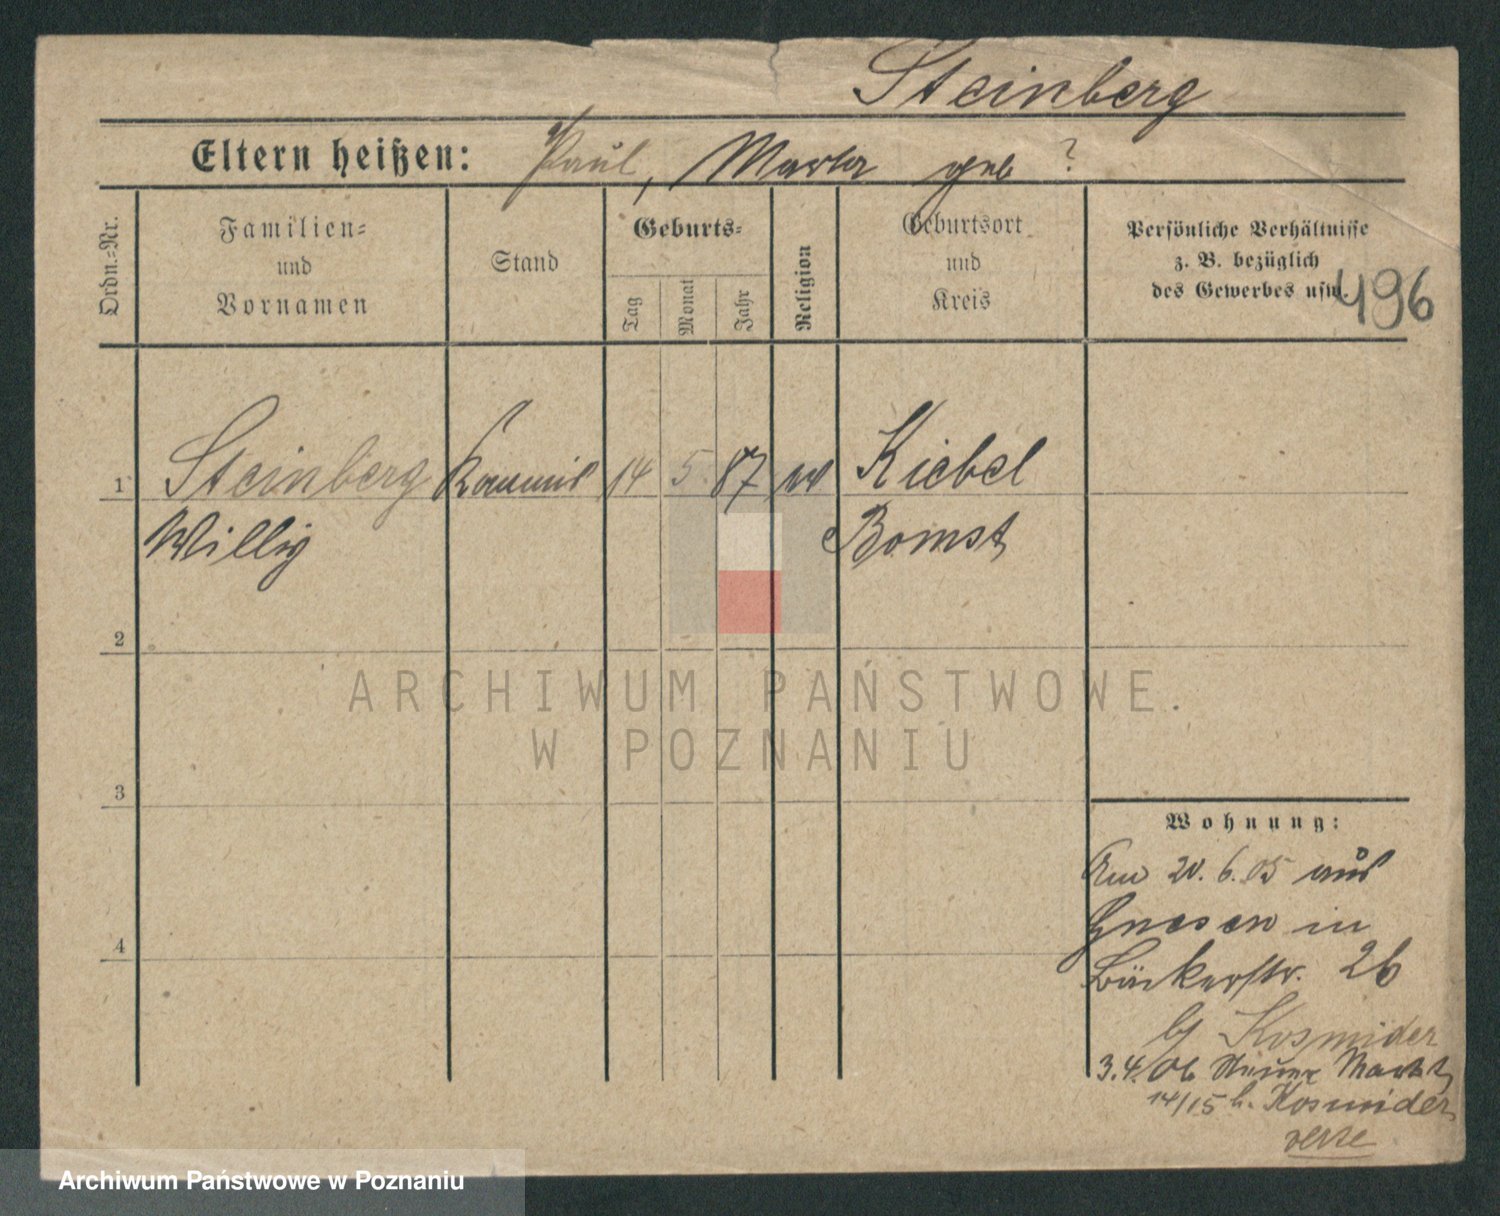 Steinberg
Eltern heißen: Paul, Martha geb ?
Ordn.-Nr.
Familien-
und
Vornamen
Stand
Geburts-
Tag
Monat
Jahr
Religion
Geburtsort
und
Kreis
Persönliche Verhältnisse
z. B. bezüglich
des Gewerbes usw.
496
1 Steinberg Kommis 14 5. 87 Kiebel
Willig Bomst
2
3
4
Wohnung:
Am 20. 6. 05 aus
Gnesen in
Bäckerstr. 26
b/ Kosmider
3.4.06 Neuer Markt
14/15 b. Kosmider
verte
ARCHIWUM PAŃSTWOWE
W POZNANIU
Archiwum Państwowe w Poznaniu